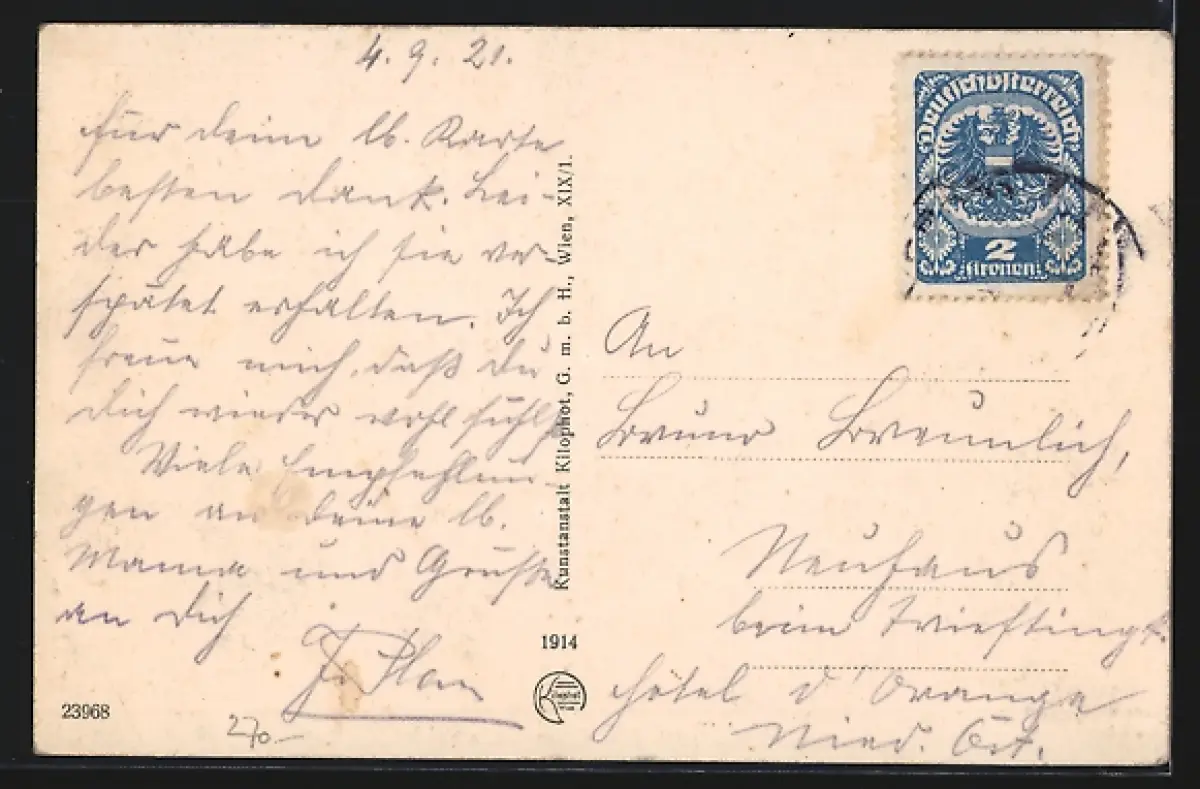 4. 9. 21.
für deine lb. Karte
besten Dank. Lei-
der habe ich sie ver
spätet erhalten. Ich
freue mich, daß Du
Dich wieder wohl fühlst
Viele Empfehlun-
gen an Deine lb.
Mama und Grüße
an Dich
23968
270-
Kunstanstalt Kilophot, G. m. b. H., Wien, XIX/1.
1914
Kilophot
Deutschösterreich
2
Kronen
An
Bruno
Neuhaus
beim Triesting
Hôtel d'Orange
Nied. Öst.